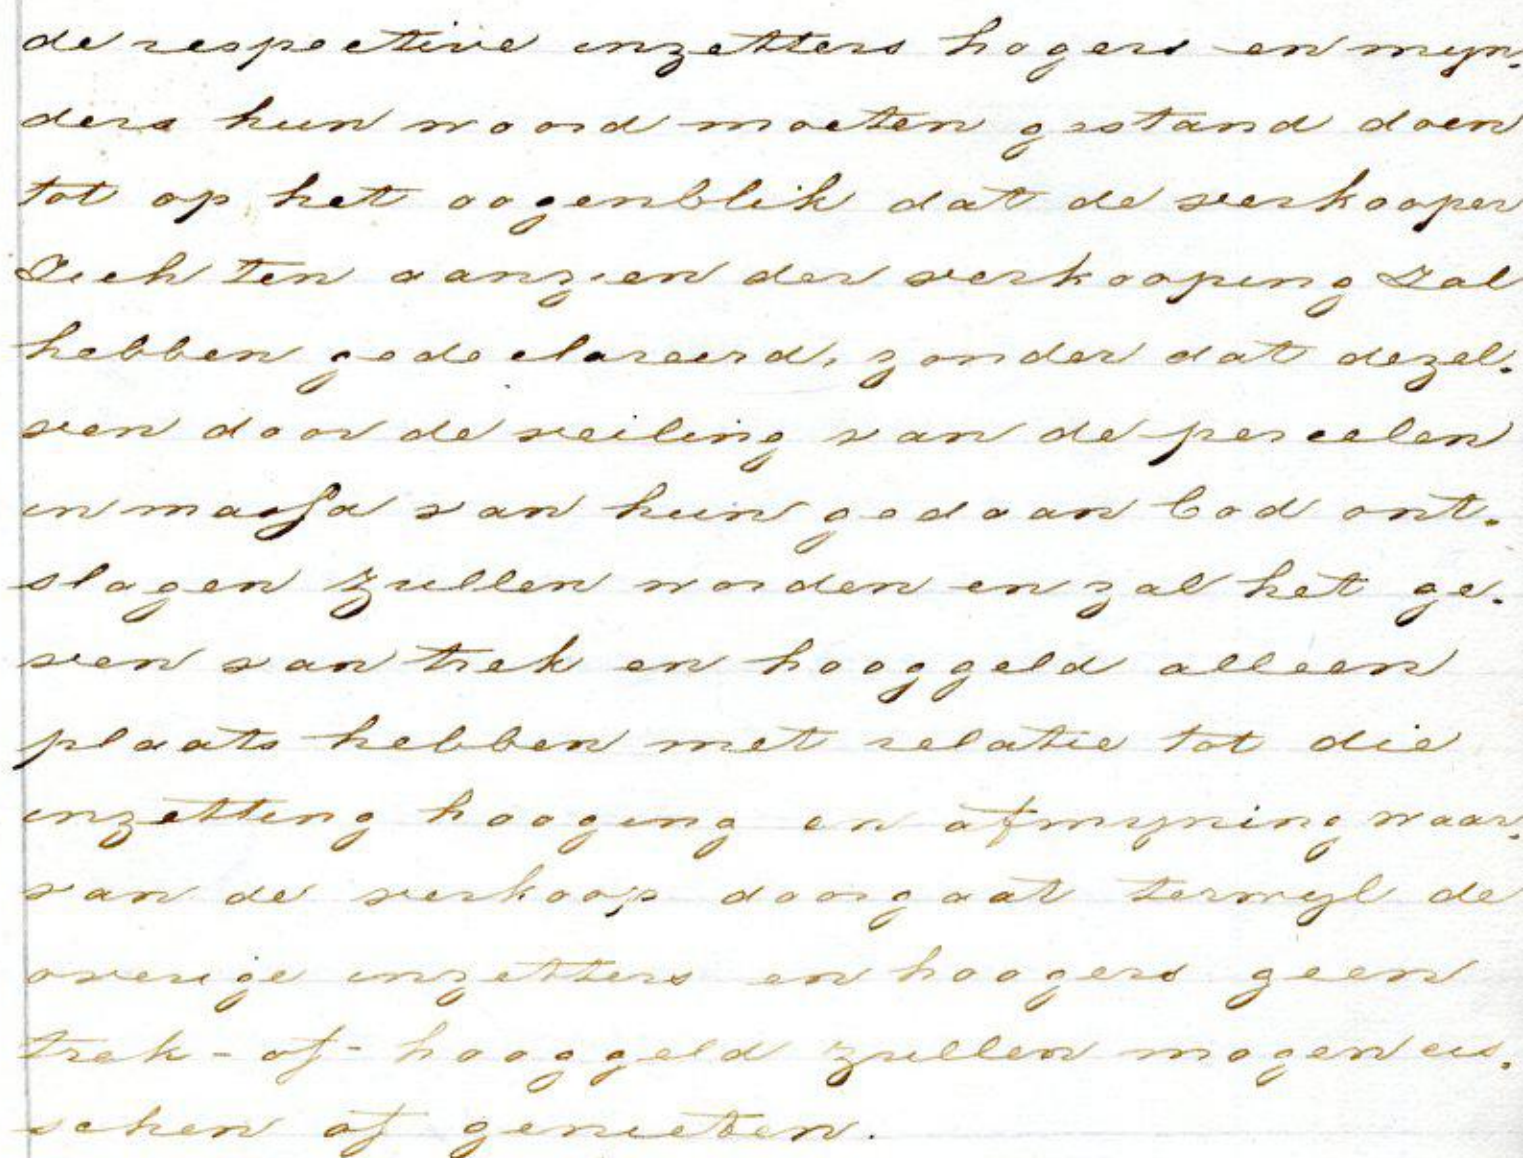 de respective inzetters hogers en myn-
ders hun woord moeten gestand doen
tot op het oogenblik dat de verkooper
Zich ten aanzien der verkooping Zal
hebben gedeclareerd, zonder dat dezel-
ven door de veiling van de perceelen
in massa van hun gedaan bod ont-
slagen zullen worden en zal het ge-
ven van trek en hooggeld alleen
plaats hebben met relatie tot die
inzetting hooging en afmyning waar-
van de verkoop doorgaat terwyl de
overige inzetters en hoogers geen
trek - of - hooggeld zullen mogen eis-
schen of genieten.